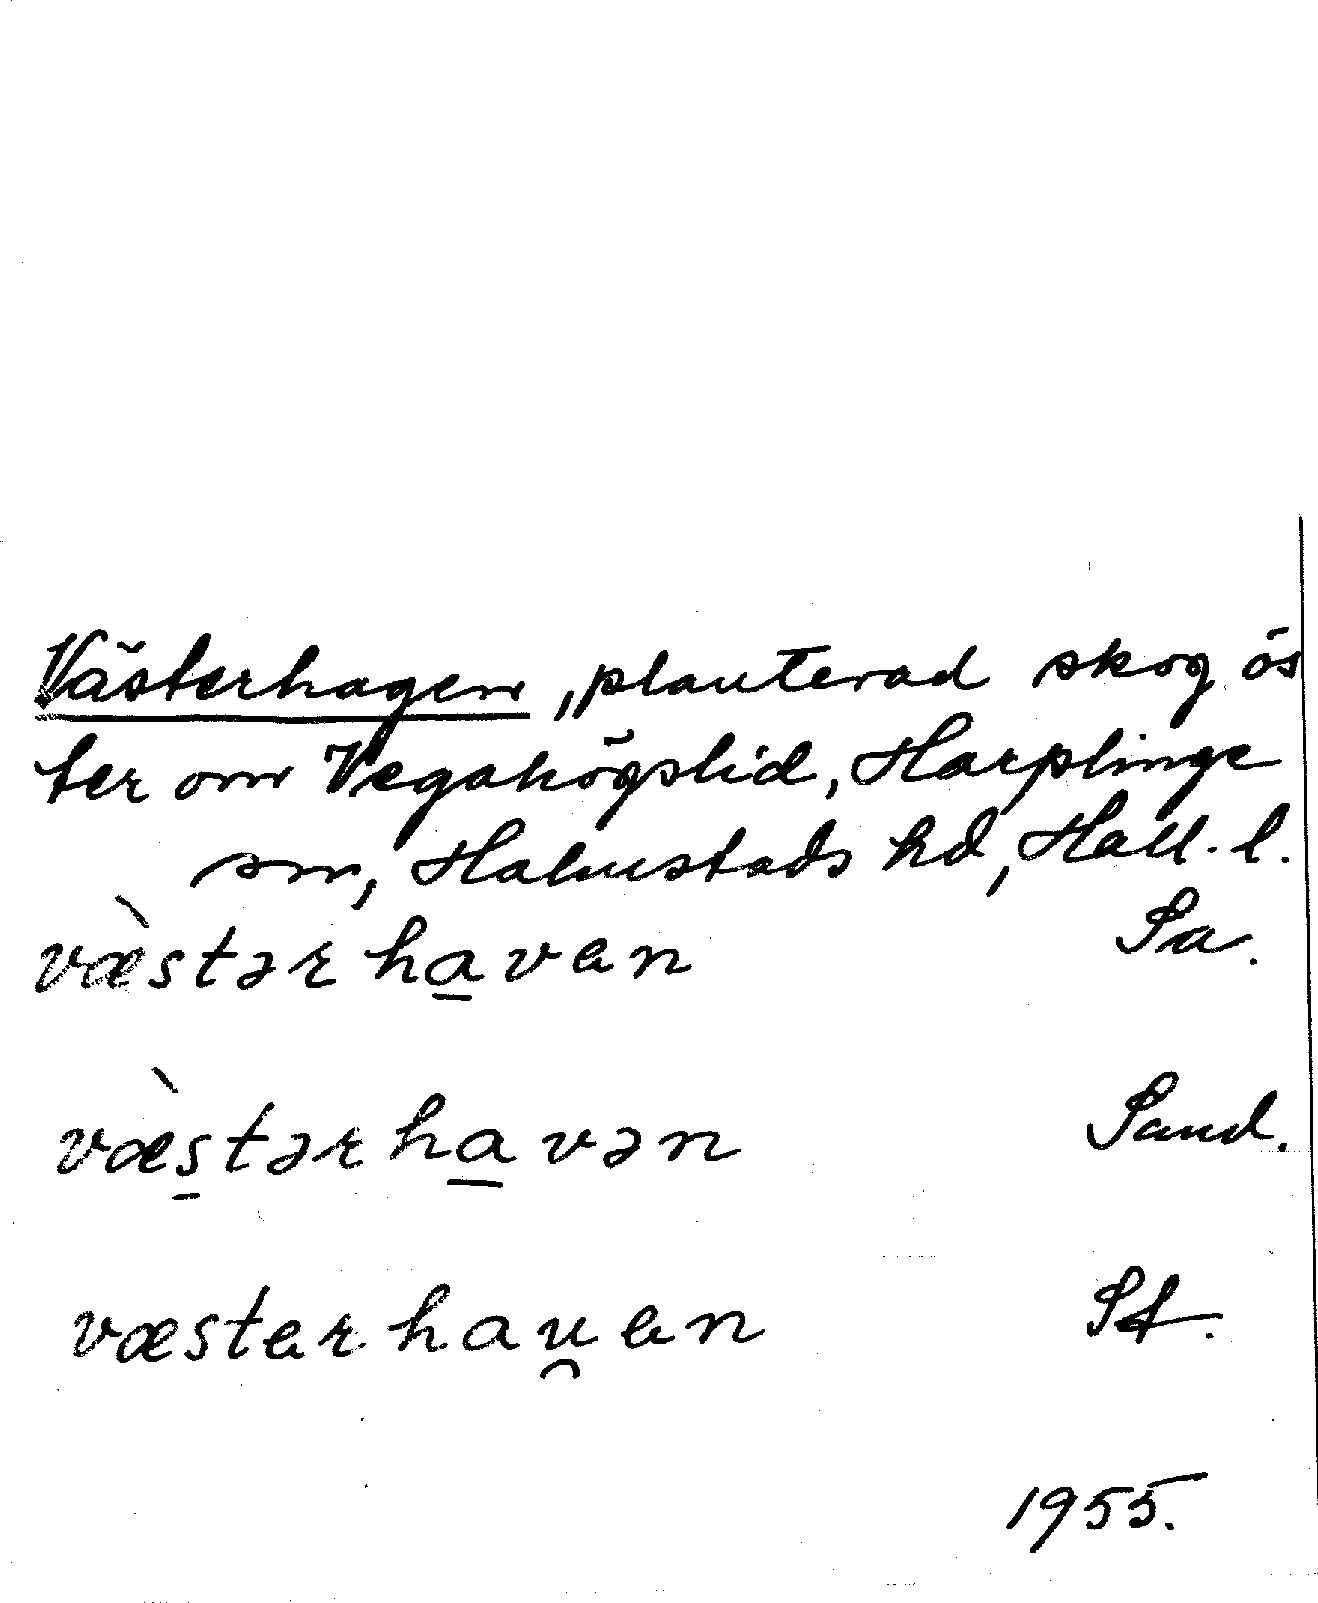 Västerhagen, planterad skog ös
ter om Vegahögslid, Harplinge
sn, Halmstads hd, Hall. l.
væ̀stərha̱ven Sa.
væ̀s̱tərha̱vən Sand.
væsterhau̯en St.
1955.